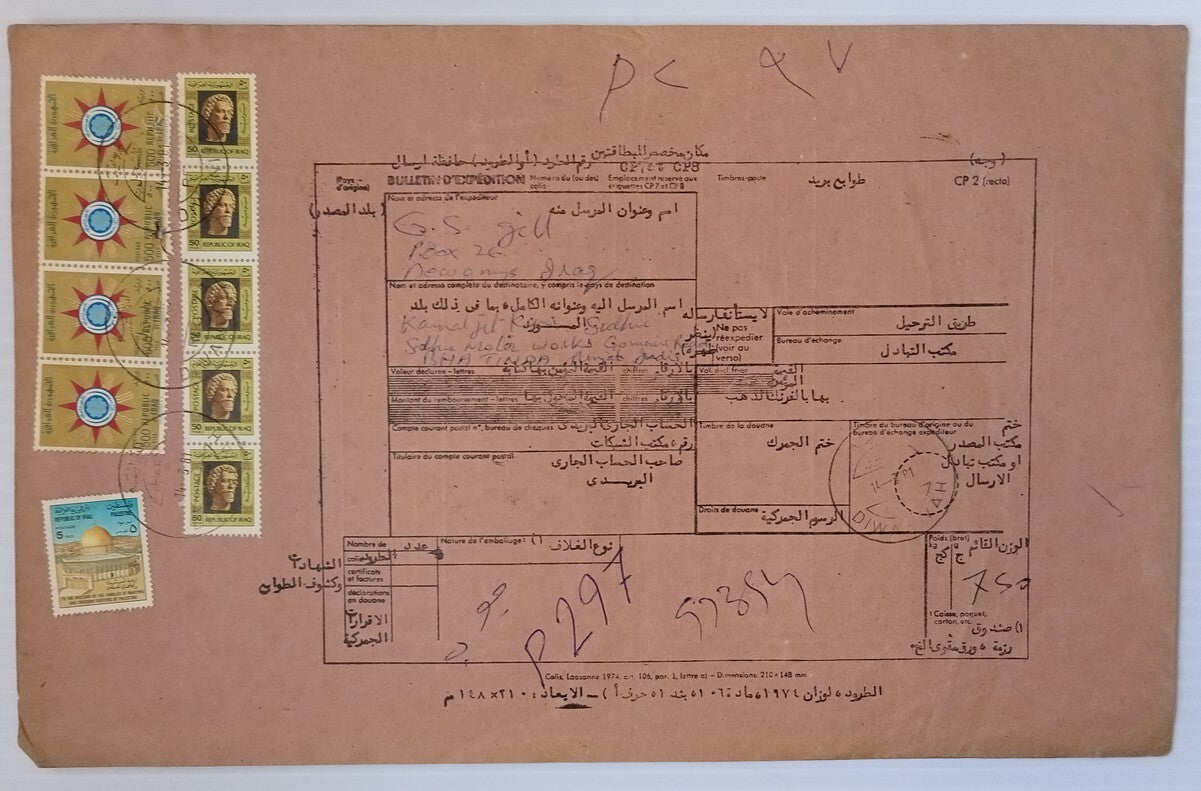 P <
٩ ٧
الجمهورية العراقية
500
REPUBLIC OF IRAQ
POSTAGE
50
REPUBLIC OF IRAQ
14.3.81
مكان مخصص للبطاقتين
رقم الطرد (أو الطرود)
حافظة ارسال
(وجه)
(Pays d'origine)
BULLETIN D'EXPÉDITION
Numéro du (ou des) colis
Emplacement réservé aux étiquettes CP7 et CP8
Timbres-poste
طوابع بريد
CP 2 (recto)
(بلد المصدر)
Nom et adresse de l'expéditeur
اسم وعنوان المرسل منه
G. S. Gill
P.Box 26
Iraq
Nom et adresse complète du destinataire, y compris le pays de destination
اسم المرسل اليه وعنوانه الكامل بما في ذلك بلد
Kamaljit Sidhu
Sidhu Motor works
BHATINDA Punjab India
لا يستأنف ارساله
(ينظر ظهره)
Ne pas réexpédier (voir au verso)
Voie d'acheminement
طريق الترحيل
Bureau d'échange
مكتب التبادل
Valeur déclarée - lettres
chiffres
بالارقام
Montant du remboursement - lettres
chiffres
بالارقام
بها بالفرنك الذهب
Compte courant postal n°, bureau de chèques
الحساب الجاري البريدي
رقم مكتب الشيكات
Titulaire du compte courant postal
صاحب الحساب الجارى
البريدى
Timbre de la douane
ختم الجمرك
Droits de douane
الرسوم الجمركية
Timbre du bureau d'origine ou du bureau d'échange expéditeur
ختم
مكتب المصدر
او مكتب تبادل
الارسال
DIWANIYAH
فلسطين
PALESTINE
REPUBLIC OF IRAQ
5 FILS
TO THE WELFARE OF THE FAMILIES OF MARTYRS
AND FREEDOM FIGHTERS OF PALESTINE
Nombre de
عدد
colis
الطرود
certificats et factures
الشهادات
وكشوف الطوابع
déclarations en douane
الاقرارات
الجمركية
Nature de l'emballage 1)
نوع الغلاف
P 297
Poids (brut)
kg
g
كج
ج
الوزن القائم
750
1 Caisse, paquet, carton, etc.
١) صندوق
رزمة ، ورق مقوى الخ
Colis, Lausanne 1974, art. 106, par. 1, lettre a) – Dimensions: 210×148 mm
الطرود ، لوزان ١٩٧٤ ، مادة ١٠٦ ، بند ١ ، حرف أ ) – الابعاد : ٢١٠×١٤٨ م